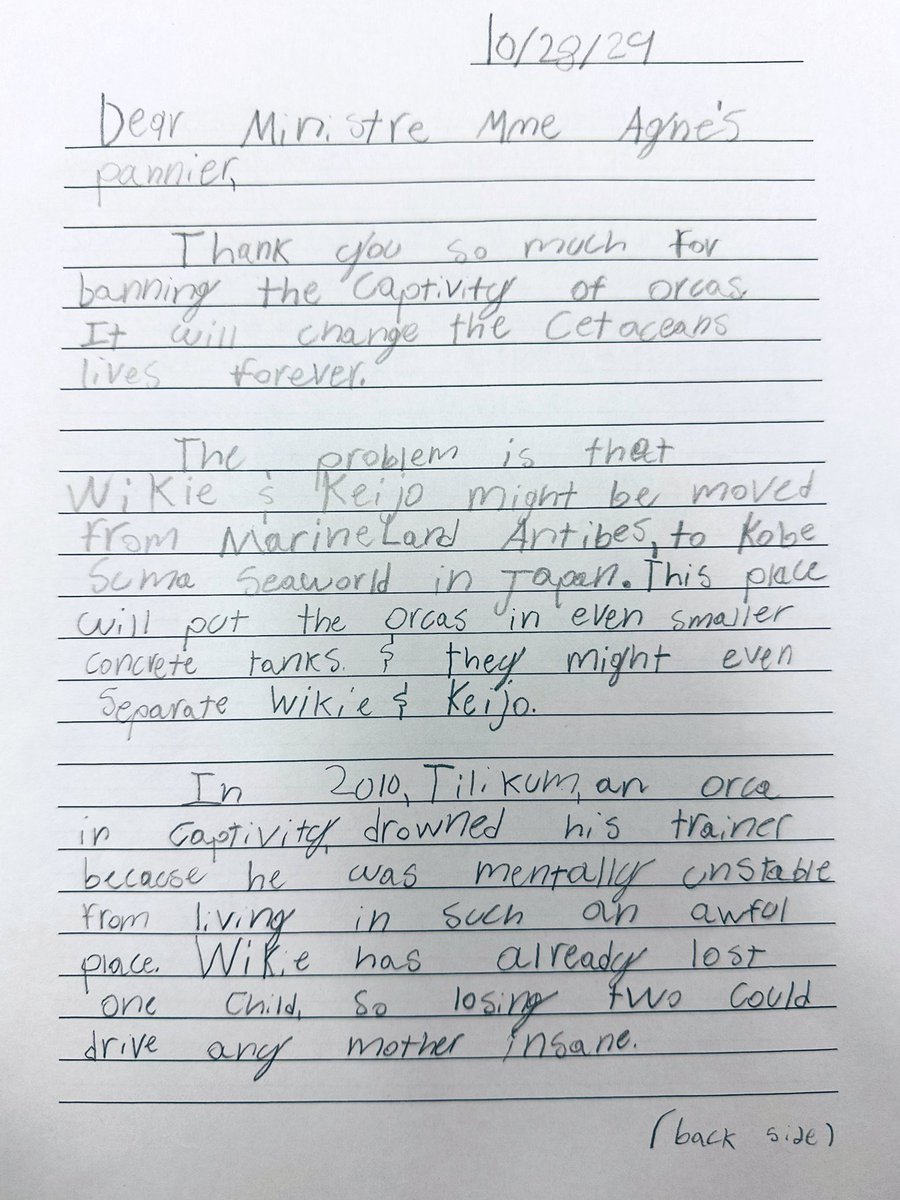 10/28/24
Dear Ministre Mme Agne's
pannier,
Thank you so much for
banning the captivity of orcas.
It will change the Cetaceans
lives forever.
The problem is that
Wikie & Keijo might be moved
from MarineLand Antibes, to Kobe
Suma Seaworld in Japan. This place
will put the orcas in even smaller
concrete tanks. & they might even
separate Wikie & Keijo.
In 2010, Tilikum, an orca
in captivity, drowned his trainer
because he was mentally unstable
from living in such an awful
place. Wikie has already lost
one child, so losing two could
drive any mother insane.
(back side)